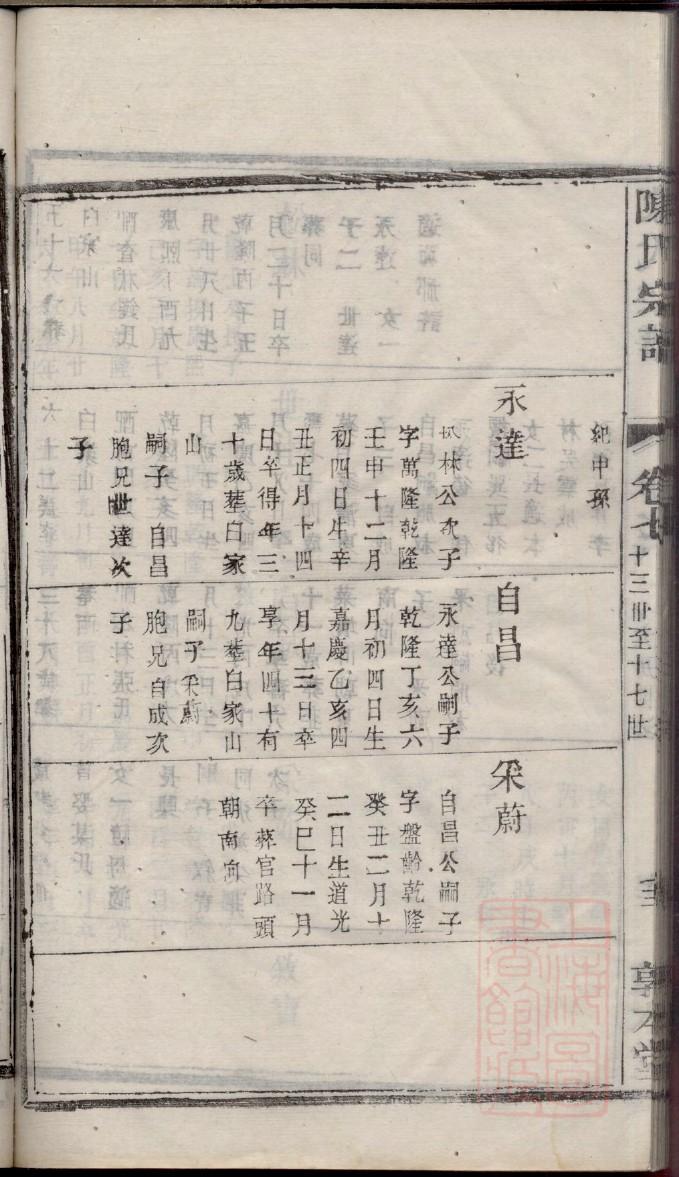 陳氏宗譜
卷七
十三世至十七世
敦本堂
紀中孫
永達
林公次子
字萬隆乾隆
壬申十二月
初四日生辛
丑正月十四
日卒得年三
十歲葬白家
山
嗣子 自昌
胞兄世達次
子
自昌
永達公嗣子
乾隆丁亥六
月初四日生
嘉慶乙亥四
月十三日卒
享年四十有
九葬白家山
嗣子采蔚
胞兄自成次
子
采蔚
自昌公嗣子
字盤齡乾隆
癸丑二月十
二日生道光
癸巳十一月
卒葬官路頭
朝南向
上海圖書館藏